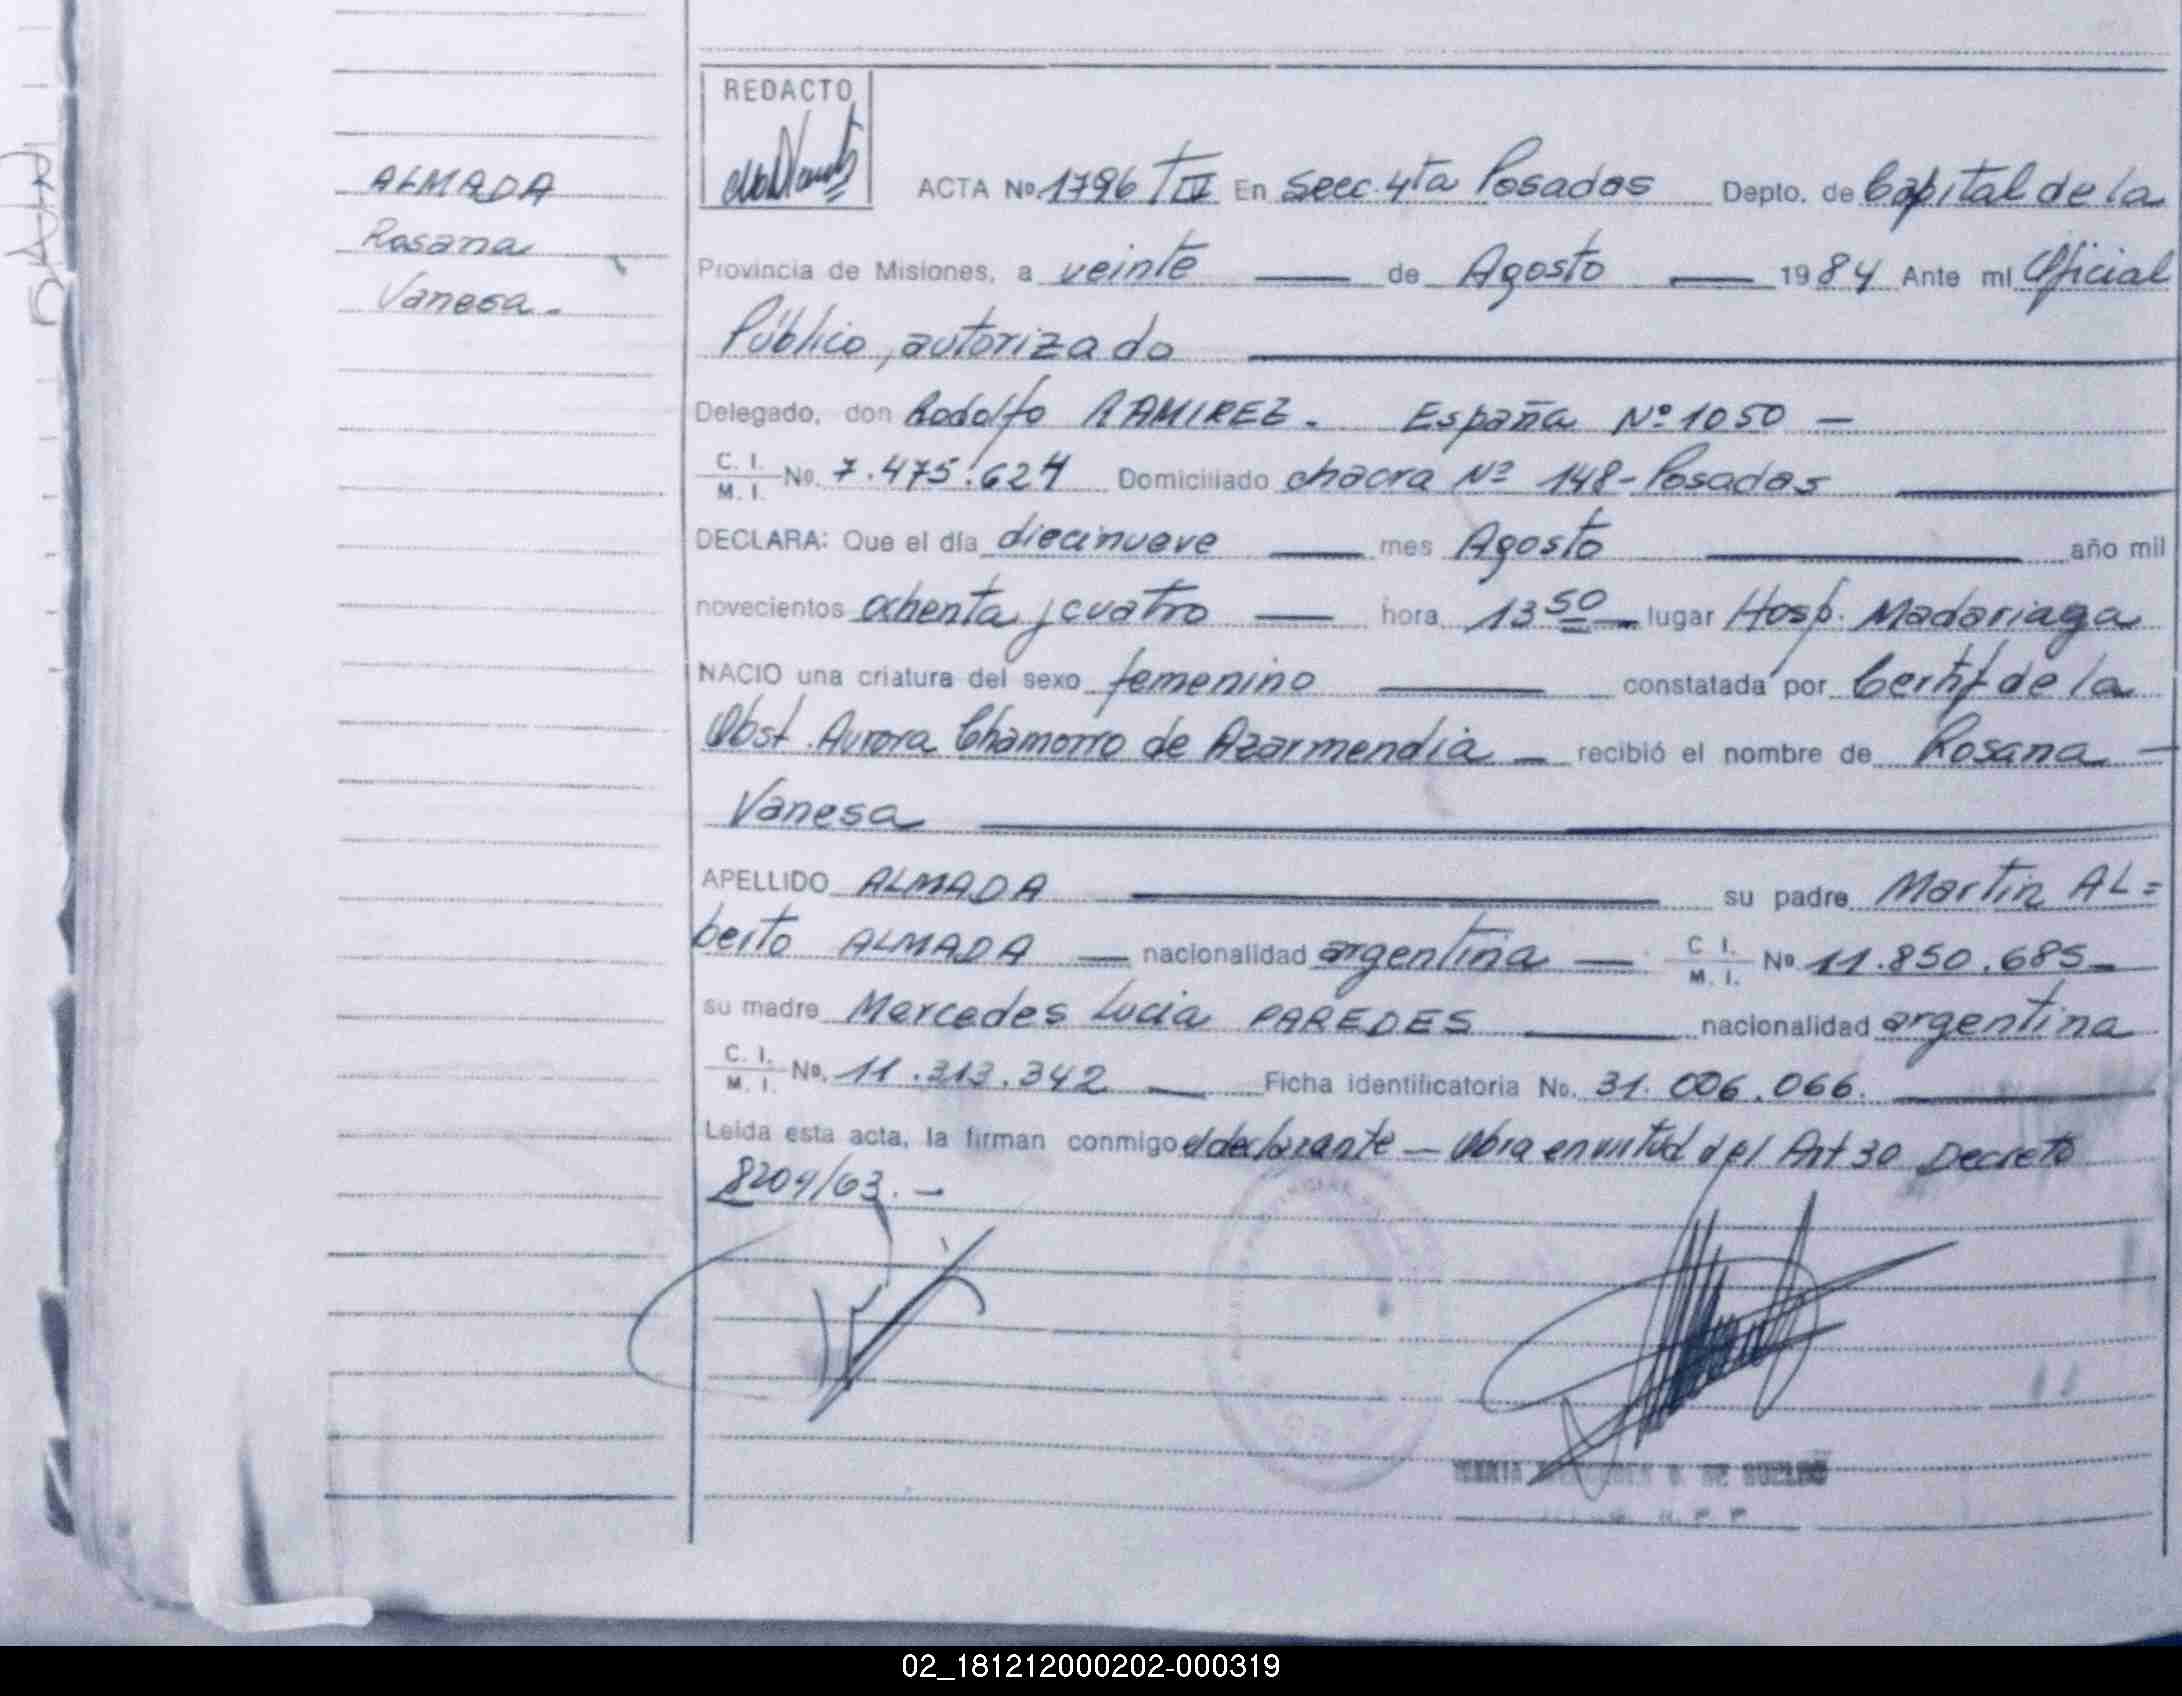 REDACTO
ALMADA
Rosana
Vanesa.
ACTA No. 1796 TIV En Secc. 4ta Posadas Depto. de Capital de la
Provincia de Misiones, a veinte — de Agosto — 1984 Ante mi Oficial
Público, autorizado —
Delegado, don Rodolfo RAMIREZ. España Nº 1050 —
C. I. M. I. No. 7.475.624 Domiciliado chacra Nº 148 - Posadas —
DECLARA: Que el día diecinueve — mes Agosto — año mil
novecientos ochenta y cuatro — hora 13 50 — lugar Hosp. Madariaga
NACIO una criatura del sexo femenino — constatada por Certif de la
Obst. Aurora Chamorro de Azarmendia — recibió el nombre de Rosana —
Vanesa —
APELLIDO ALMADA — su padre Martin AL=
berto ALMADA — nacionalidad argentina — C. I. M. I. No 11.850.685 —
su madre Mercedes Lucia PAREDES — nacionalidad argentina
C. I. M. I. No. 11.313.342 — Ficha identificatoria No. 31.006.066. —
Leída esta acta, la firman conmigo el declarante — Obra en virtud del Art 30 Decreto
8204/63. —
DE SUELDO
02_181212000202-000319